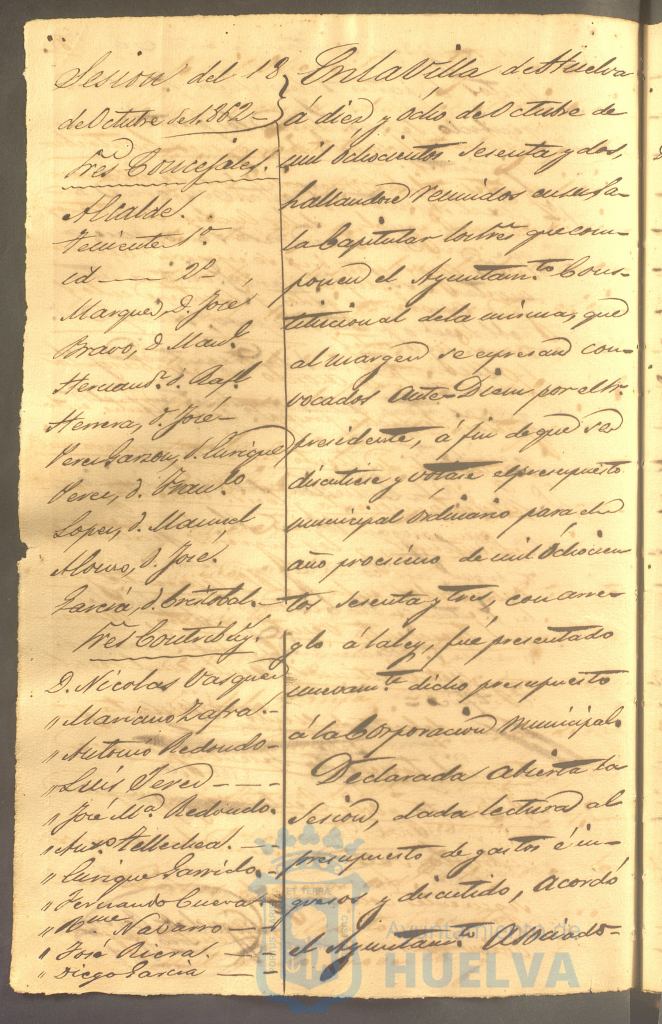 Sesion del 18
de Octubre de 1.862-
Sres Concejales.
Alcalde.
Teniente 1º.
id —— 2º
Marquez, D. José
Bravo, D. Manl.
Hernandz. D. Rafl
Herrera, D. José-
Perez Garzon, D. Enrique
Perez, D. Braulo
Lopez, D. Manuel
Alonso, D. José.
Garcia, D. Cristobal.-
Sres Contribuy.
D. Nicolas Vasquez
" Mariano Zafra.-
" Antonio Redondo-
" Luis Perez - - -
" José Mª Redondo.
" Anto Tellechea. -
" Enrique Garrido.-
" Fernando Cueva
" Navarro - -
" José Riera - -
" Diego Garcia - -
En la Villa de Huelva
á diez y ócho de Octubre de
mil óchocientos sesenta y dos,
hallandose reunidos en su Sa-
la Capitular los Sres que com-
ponen el Ayuntamto Cons-
titucional de la misma, que
al margen se espresan con-
vocados Ante-Diem por el Sr.
presidente, á fin de que se
discutiese y votase el presupuesto
municipal órdinario para el
año procsimo de mil óchocien
tos sesenta y tres, con arre-
glo á la ley, fué presentado
nuevamte dicho presupuesto
á la Corporacion Municipal.
Declarada abierta la
Sesion, dada lectura al
presupuesto de gastos é in-
gresos y discutido, acordó
el Ayuntamto Asociado-
Ayuntamiento de
HUELVA